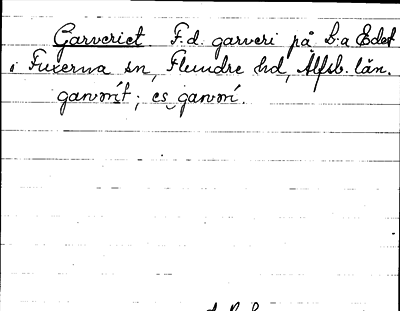 Garveriet F.d. garveri på L:a Edet
i Fuxerna sn, Flundre hd, Älfsb. län.
garvorít; es garvorí.